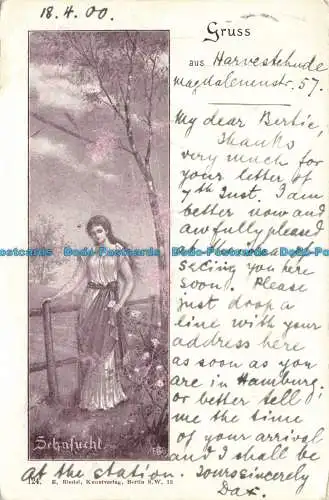 18.4.00.
Gruss
aus Harvestehude
Magdalenenstr. 57.
My dear Bertie,
Thanks
very much for
your letter of
7th Inst. I am
better now and
awfully pleased
seeing you here
soon. Please
just drop a
line with your
address here
as soon as you
are in Hamburg
or better tell
me the time
of your arrival
and I shall be
at the station. Yours sincerely
Sehnsucht
124. E. Riedel, Kunstverlag, Berlin S.W. 12
Postcards
Postcards
Postcards
Postcards